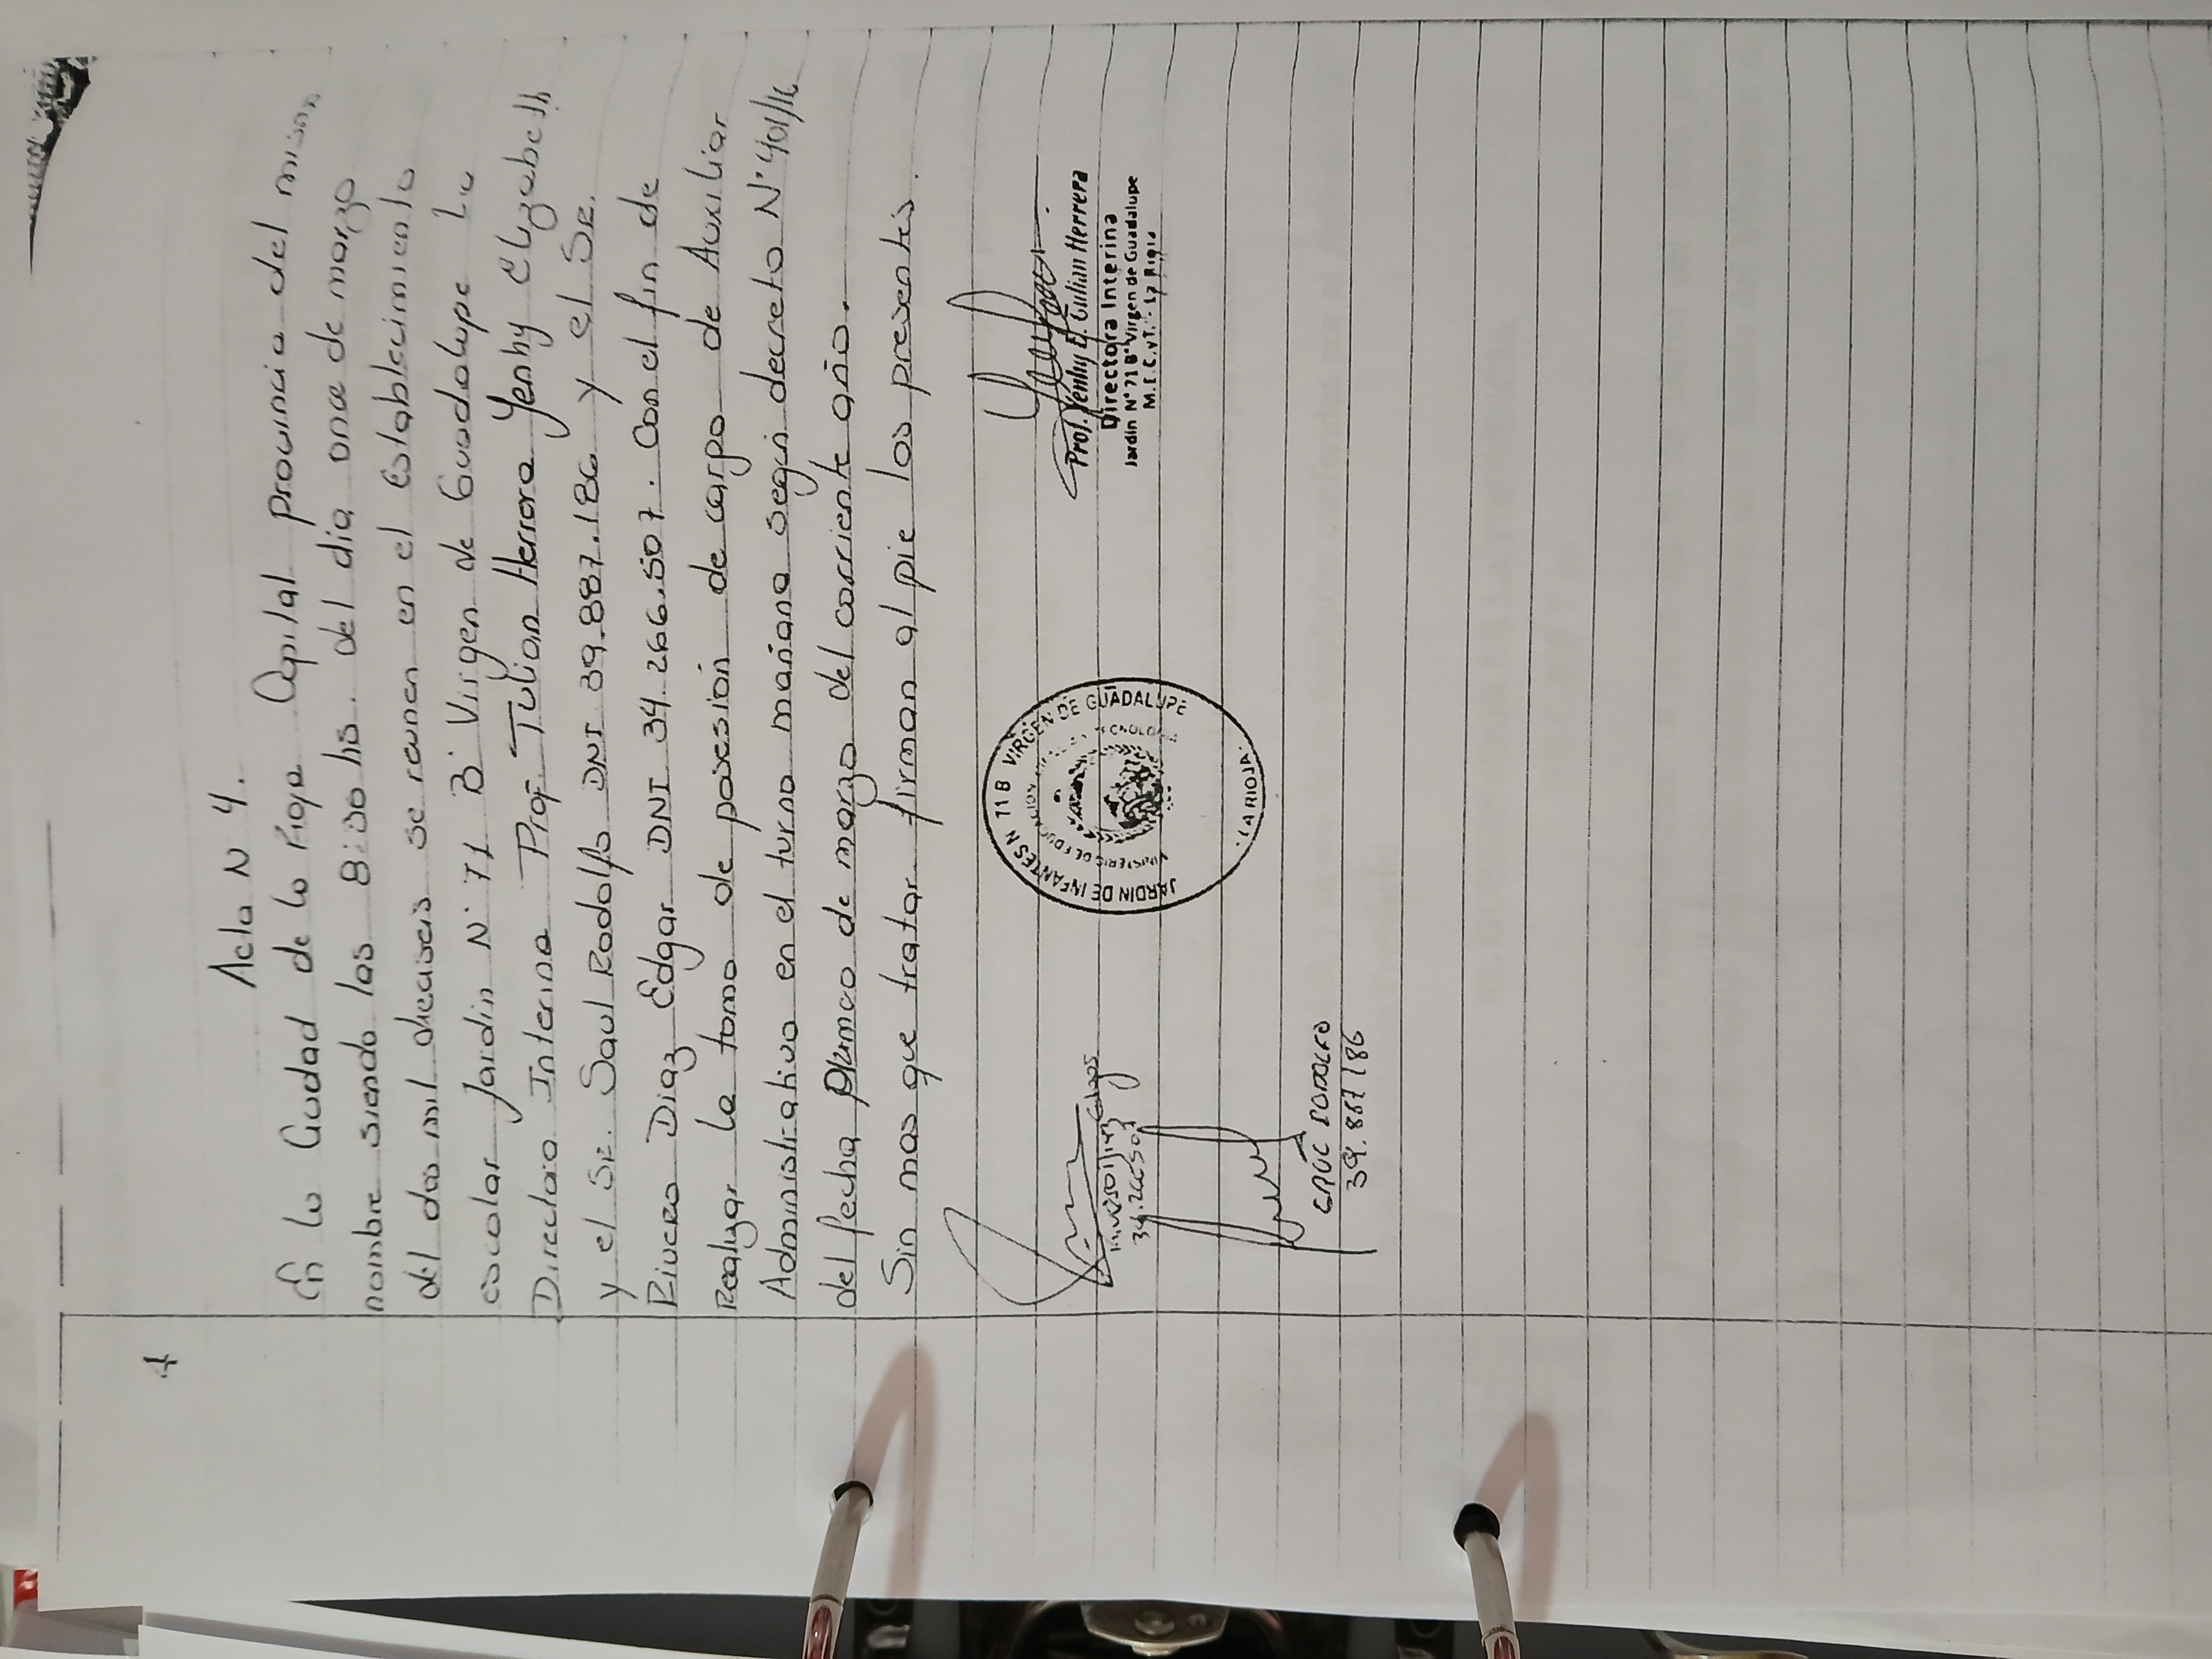 4
Acta N 4.
En la Ciudad de la Rioja Capital provincia del mismo
nombre siendo las 8:30 hs. del día once de marzo
del dos mil dieciseis se reunen en el establecimiento
escolar Jardin N° 71 B° Virgen de Guadalupe La
Directora Interina Prof. Tulian Herrera Yenhy Elizabeth
y el Sr. Saul Rodolfo DNI 39.887.186 y el Sr.
Rivero Diaz Edgar DNI 34.266.507. Con el fin de
Realizar la toma de posesión de cargo de Auxiliar
Administrativo en el turno mañana según decreto N° 401/16
del fecha primero de marzo del corriente año.
Sin mas que tratar firman al pie los presentes.
Prof. Yenhy E. Tulian Herrera
Directora Interina
Jardín N° 71 B° Virgen de Guadalupe
M.E.C. y T. - La Rioja
JARDIN DE INFANTES N 71 B VIRGEN DE GUADALUPE
MINISTERIO DE EDUCACION TECNOLOGIA
LA RIOJA
34.266507
SAUL RODOLFO
39.887186